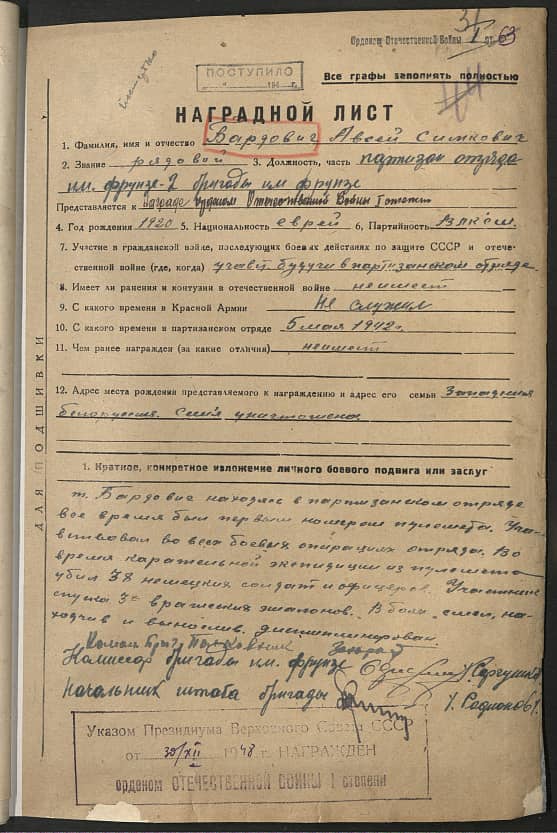 Орденом Отечественной Войны
от 63
ПОСТУПИЛО
194 г.
Все графы заполнять полностью
НАГРАДНОЙ ЛИСТ
1. Фамилия, имя и отчество Бардович Авсей Симкович
2. Звание рядовий 3. Должность, часть партизан отряда
им. Фрунзе-2 бригады им фрунзе
Представляется к награде орденом Отечественной Войны I степени
4. Год рождения 1920 5. Национальность еврей 6. Партийность ВЛКСМ.
7. Участие в гражданской войне, последующих боевых действиях по защите СССР и отече-
ственной войне (где, когда) участ. будучи в партизанском отряде
8. Имеет ли ранения и контузии в отечественной войне неимеет
9. С какого времени в Красной Армии Не служил
10. С какого времени в партизанском отряде 5 мая 1942 г.
11. Чем ранее награжден (за какие отличия) неимеет
12. Адрес места рождения представляемого к награждению и адрес его семьи Западная
белоруссия. Семья уничтожена
ДЛЯ ПОДШИВКИ
1. Краткое, конкретное изложение личного боевого подвига или заслуг
т. Бардович находясь в партизанском отряде
все время был первым номером пулемета. Уча-
ствовал во всех боевых операциях отряда. Во
время карательной экспедиции из пулемета
убил 38 немецких солдат и офицеров. Участник
спуска 3х вражеских эшалонов. В боях смел, на-
ходчив и вынослив. дисциплинирован.
Коман. Бриг. Полковник
Комиссар бригады им. фрунзе
Начальник штаба бригады
Указом Президиума Верховного Совета СССР
от 30/XII 1948 г. НАГРАЖДЕН
орденом ОТЕЧЕСТВЕННОЙ ВОЙНЫ I степени